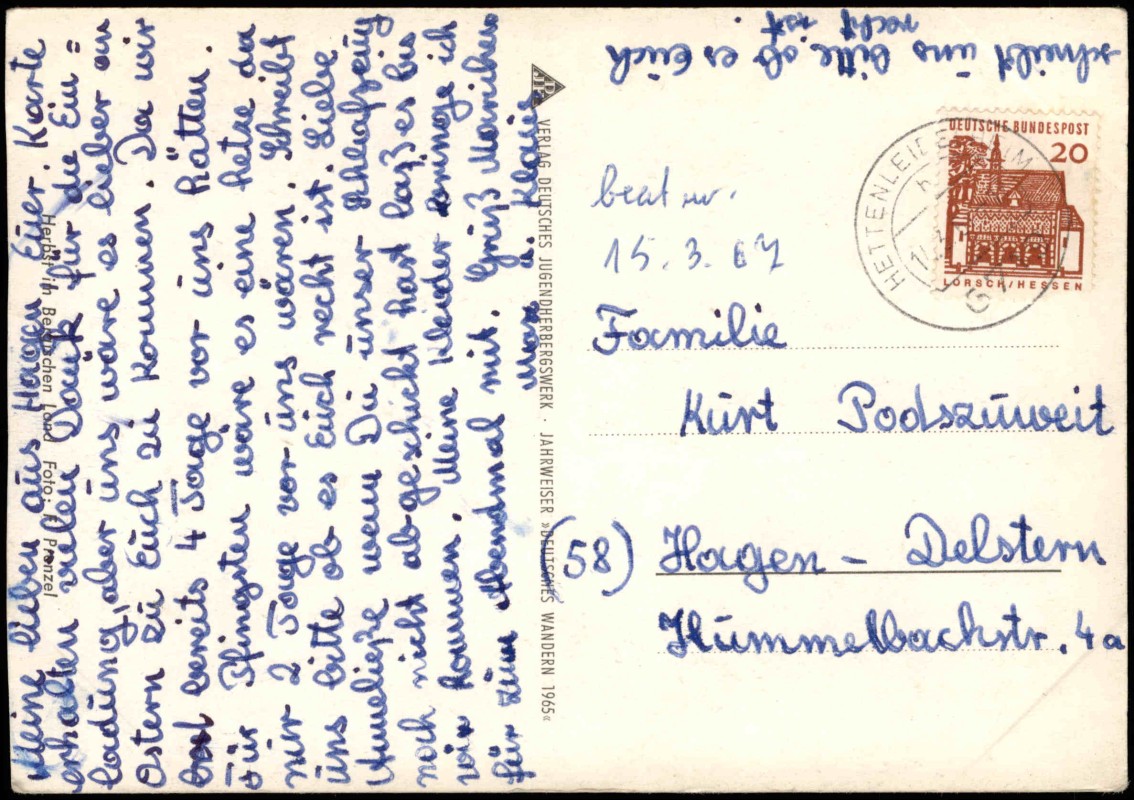 Meine lieben aus Hagen Eúer Karte
erhalten vielen Dank für die Ein =
ladúng, aber úns wäre es lieber an
Ostern zú Eúch zú kommen. Da wir
bereits 4 Tage vor úns hätten.
Für Pfingsten wäre es eine hetze da
núr 2 Tage vor úns wären. Schreibt
úns bitte ob es Eúch recht ist. Liebe
Anneliese wenn Dú únser Schlafzeúg
noch nicht abgeschickt hast laß es bis
wir kommen. Meine Kleider bringe ich
für zúm Abendmal mit. Grúß Mariechen
Max ú. Klaús
schreibt úns bitte ob es Eúch
recht ist
Herbst im Bergischen Land Foto: F. Prenzel
VERLAG DEUTSCHES JUGENDHERBERGSWERK · JAHRWEISER »DEUTSCHES WANDERN 1965«
DEUTSCHE BUNDESPOST
20
LORSCH/HESSEN
HETTENLEIDELHEIM
beatw.
15.3.67
Familie
Kúrt Podszúweit
(58) Hagen - Delstern
Húmmelbachstr. 4a